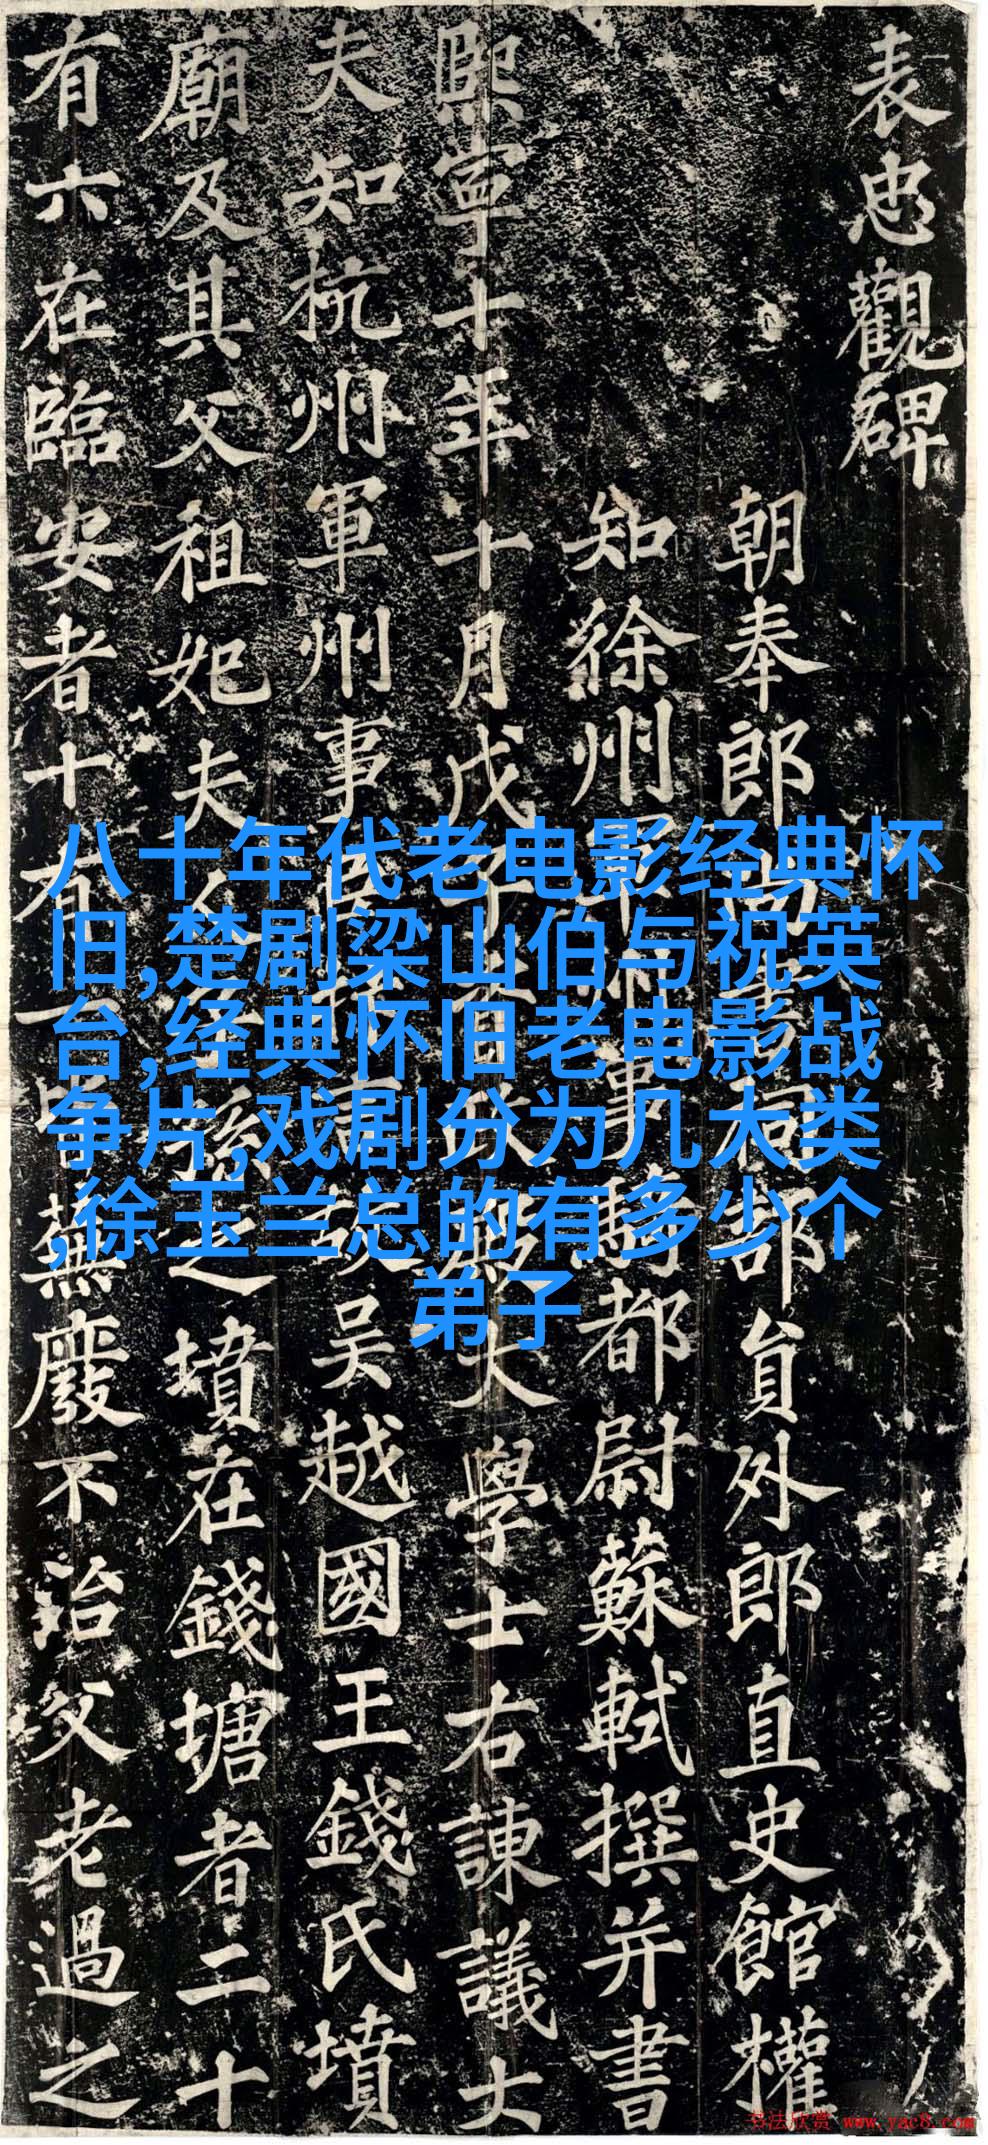 表忠觀碑
朝奉郎尚書祠部員外郎直史館權
知徐州軍州事騎都尉蘇軾撰并書
熙寧十年十月戊子資政殿大學士右諫議大
夫知杭州軍州事臣抃言故吳越國王錢氏墳
廟及其父祖妃夫人子孫之墳在錢塘者二十
有六在臨安者十有一皆蕪廢不治父老過之
八十年代老电影经典怀
旧,楚剧梁山伯与祝英
台,经典怀旧老电影战
争片,戏剧分为几大类
,徐玉兰总的有多少个
弟子
书法欣赏 www.yac8.com